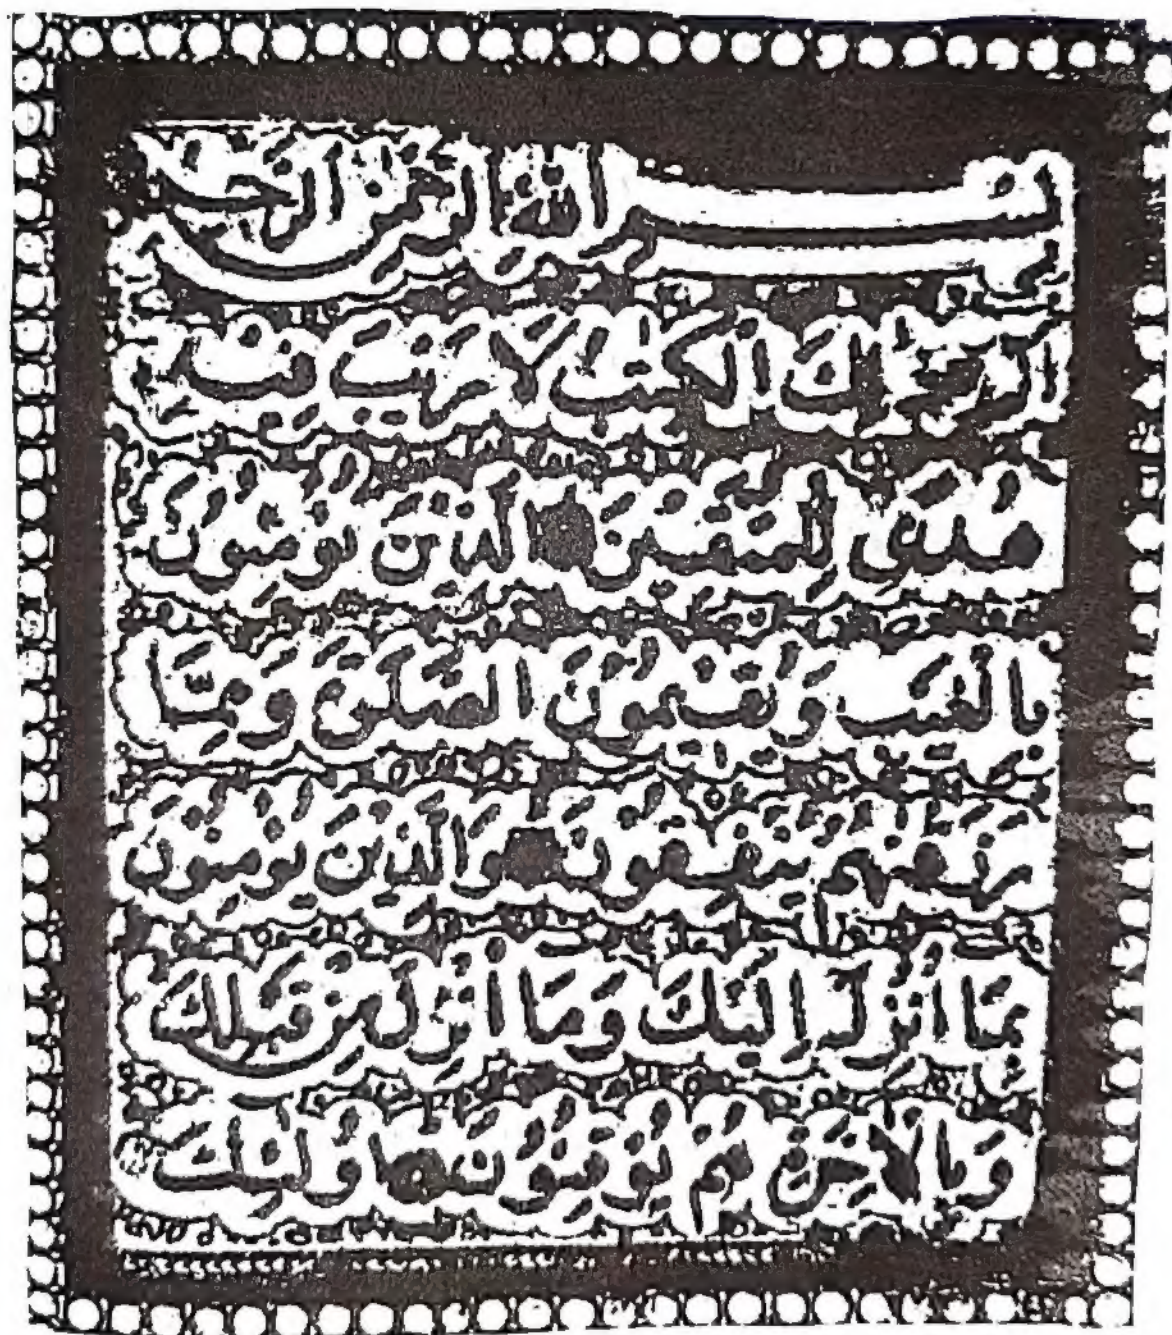 بِسْمِ اللهِ الرَّحْمٰنِ الرَّحِيمِ
الٓمّٓ ذٰلِكَ الْكِتٰبُ لَا رَيْبَ فِيهِ
هُدًى لِّلْمُتَّقِينَ الَّذِينَ يُؤْمِنُونَ
بِالْغَيْبِ وَيُقِيمُونَ الصَّلٰوةَ وَمِمَّا
رَزَقْنٰهُمْ يُنْفِقُونَ وَالَّذِينَ يُؤْمِنُونَ
بِمَا أُنْزِلَ إِلَيْكَ وَمَا أُنْزِلَ مِنْ قَبْلِكَ
وَبِالْآخِرَةِ هُمْ يُوقِنُونَ أُولٰئِكَ